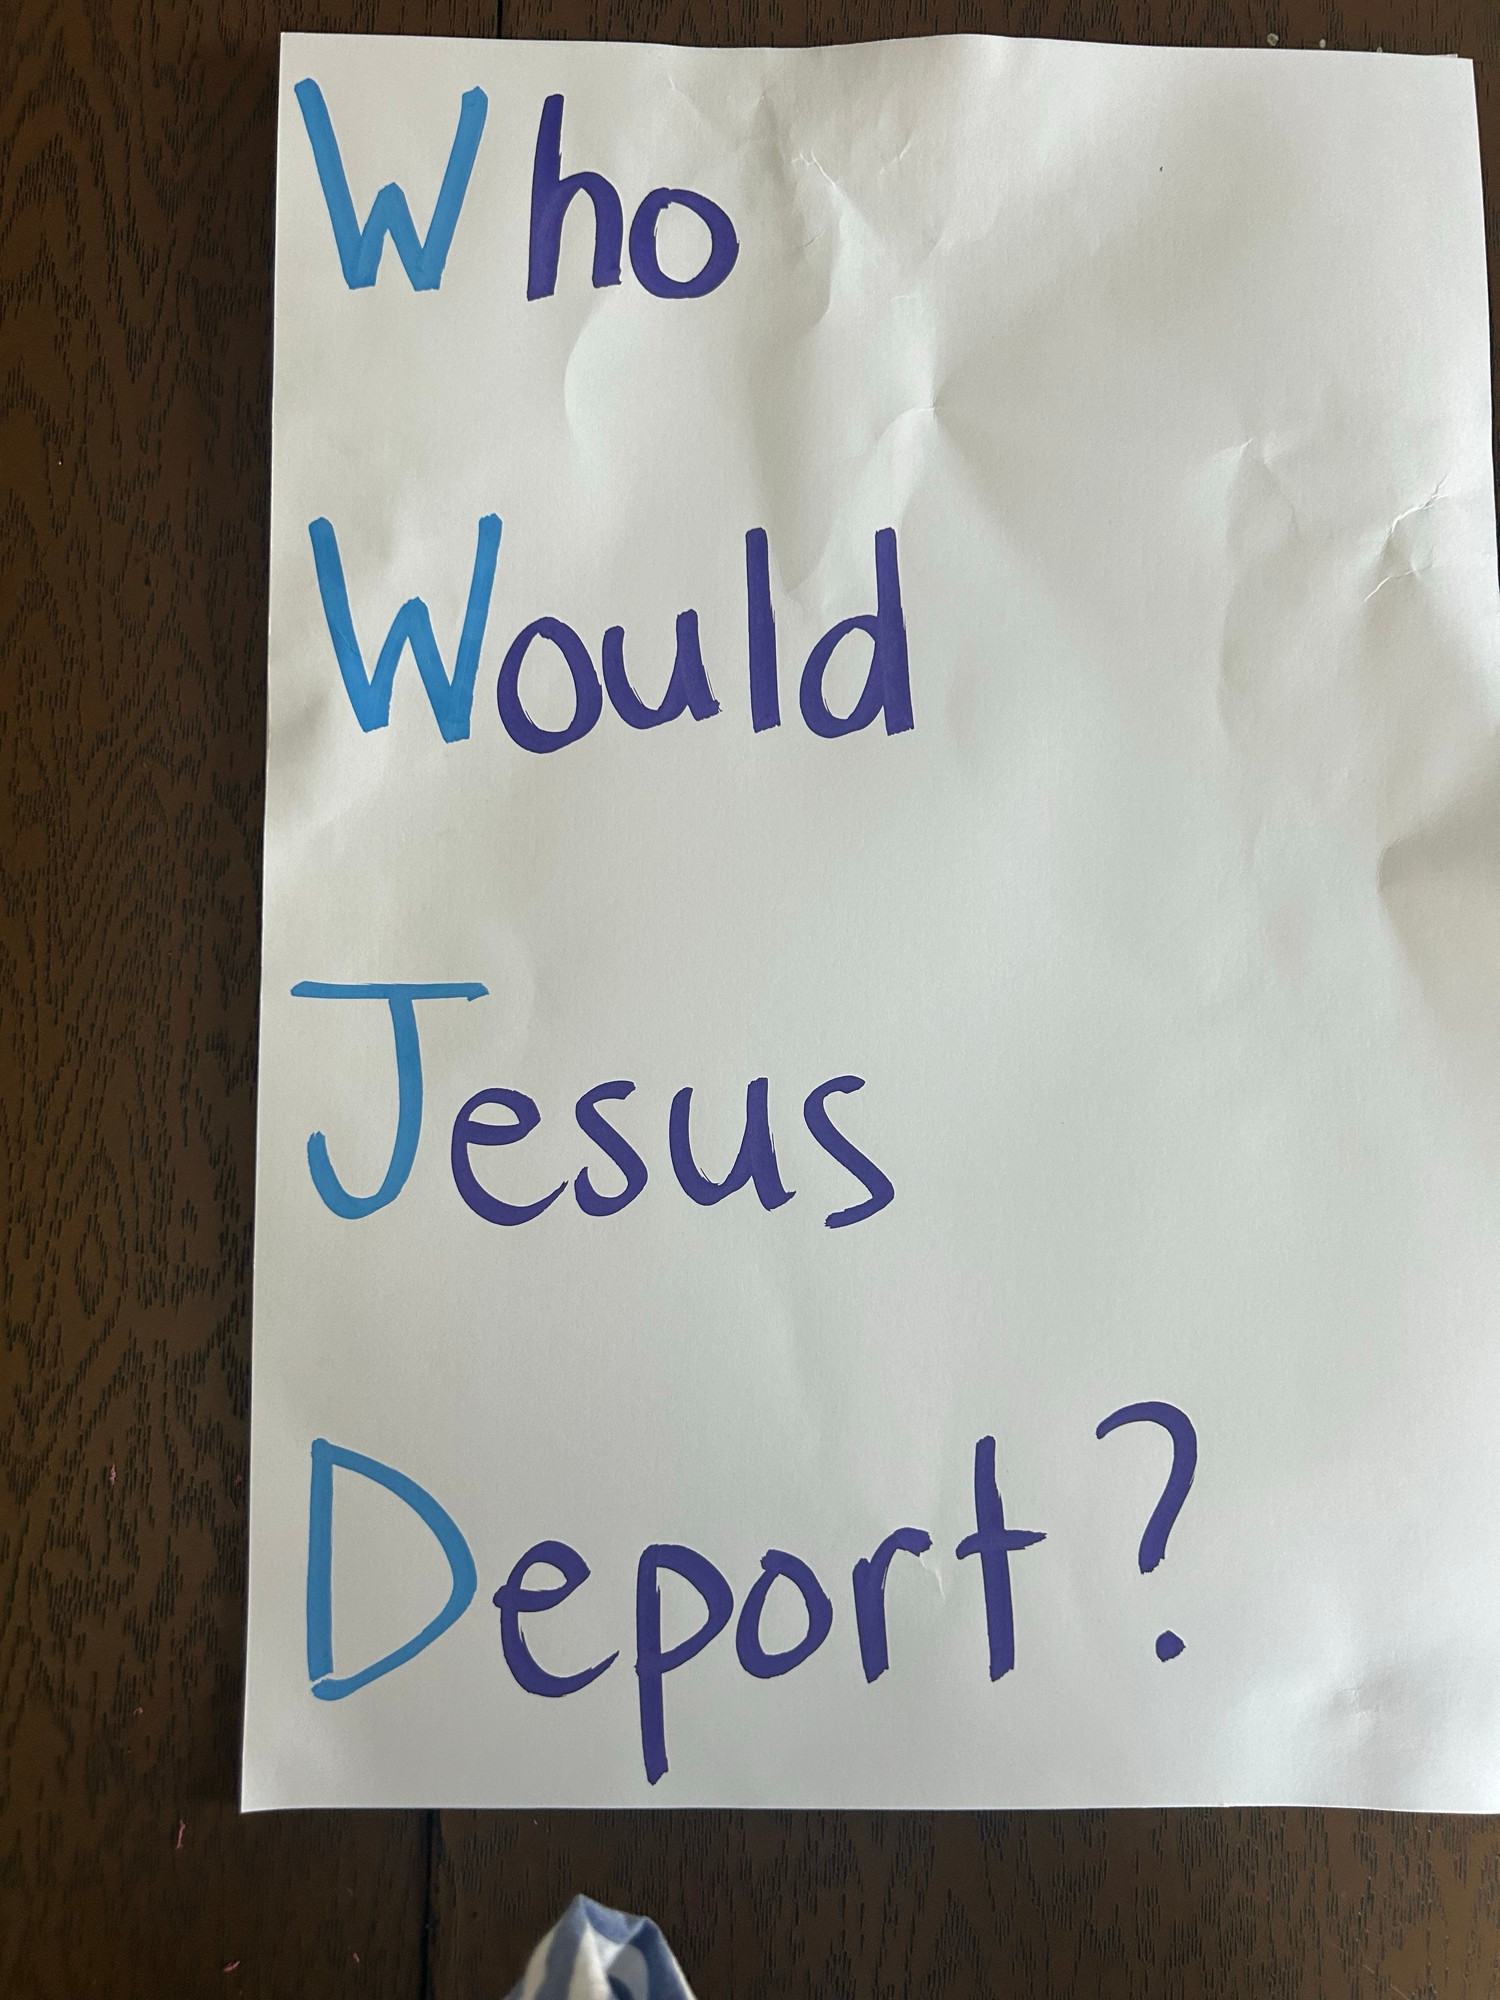 Who
Would
Jesus
Deport?